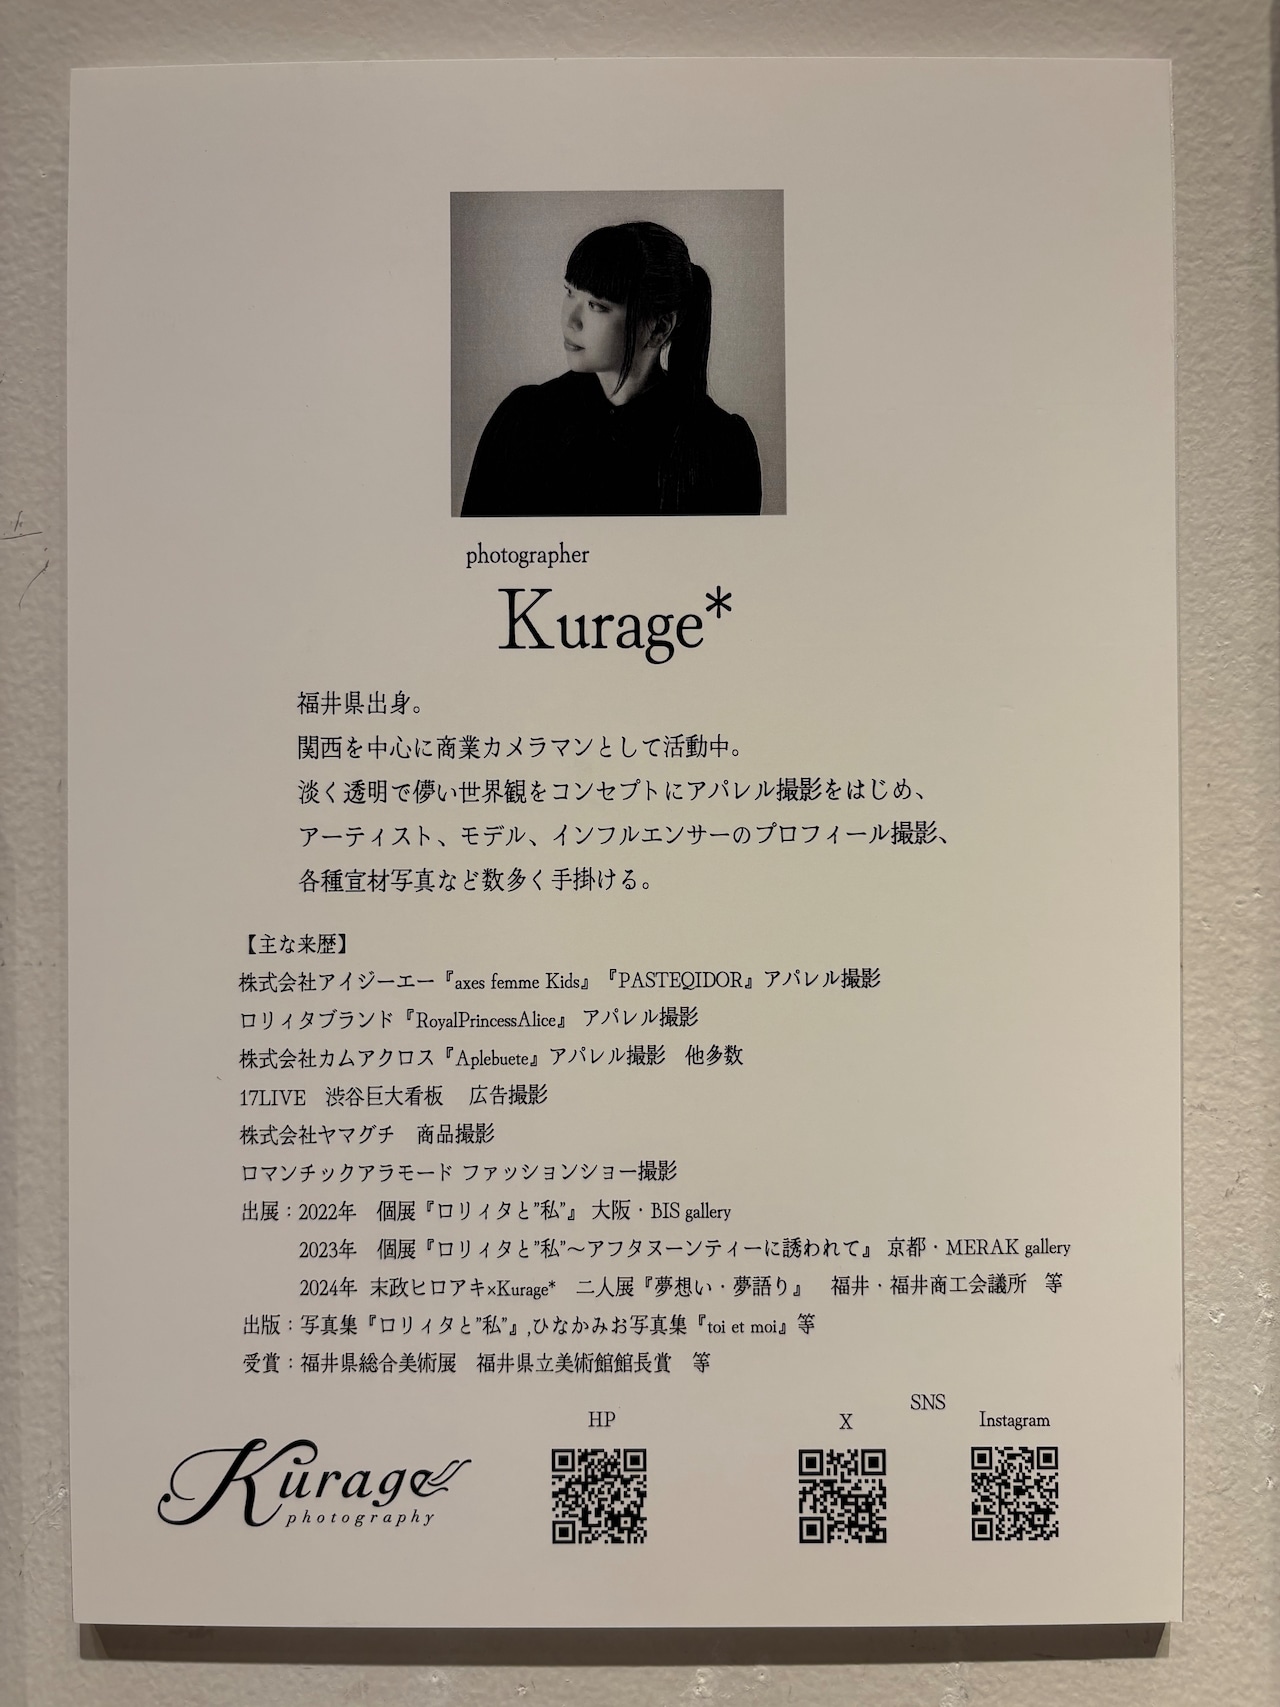 photographer
Kurage*
福井県出身。
関西を中心に商業カメラマンとして活動中。
淡く透明で儚い世界観をコンセプトにアパレル撮影をはじめ、
アーティスト、モデル、インフルエンサーのプロフィール撮影、
各種宣材写真など数多く手掛ける。
【主な来歴】
株式会社アイジーエー『axes femme Kids』『PASTEQIDOR』アパレル撮影
ロリィタブランド『RoyalPrincessAlice』 アパレル撮影
株式会社カムアクロス『Aplebuete』アパレル撮影　他多数
17LIVE　渋谷巨大看板　広告撮影
株式会社ヤマグチ　商品撮影
ロマンチックアラモード ファッションショー撮影
出展：2022年　個展『ロリィタと”私”』 大阪・BIS gallery
2023年　個展『ロリィタと”私”～アフタヌーンティーに誘われて』 京都・MERAK gallery
2024年 末政ヒロアキ×Kurage*　二人展『夢想い・夢語り』　福井・福井商工会議所　等
出版：写真集『ロリィタと”私”』,ひなかみお写真集『toi et moi』等
受賞：福井県総合美術展　福井県立美術館館長賞　等
SNS
HP
X
Instagram
Kurage
photography